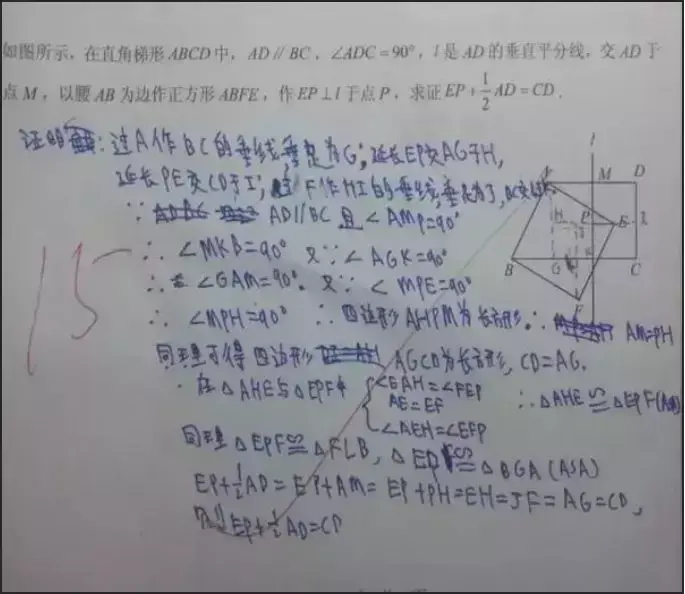 如图所示，在直角梯形ABCD中，AD∥BC，∠ADC=90°，l是AD的垂直平分线，交AD于
点M，以腰AB为边作正方形ABFE，作EP⊥l于点P，求证EP+1/2AD=CD．
证明：过A作BC的垂线，垂足为G；延长EP交AG于H，
延长PE交CD于I；过F作HI的垂线，垂足为J，
∵ AD∥BC 且∠AMP=90°
∴ ∠MKB=90° 又∵∠AGK=90°
∴ ∠GAM=90° 又∵ ∠MPE=90°
∴ ∠MPH=90° ∴四边形AHPM为长方形。∴ AM=PH
同理可得四边形 AGCD为长方形，CD=AG.
在△AHE与△EPF中 ∠EAH=∠FEP
AE=EF ∴△AHE≌△EPF
∠AEH=∠EFP
同理△EPF≌△FLB，△ ≌△BGA(ASA)
EP+1/2AD=EP+AM=EP+PH=EH=JF=AG=CD，
则EP+1/2AD=CD
15
l
A M D
H P E I
B G K C
F